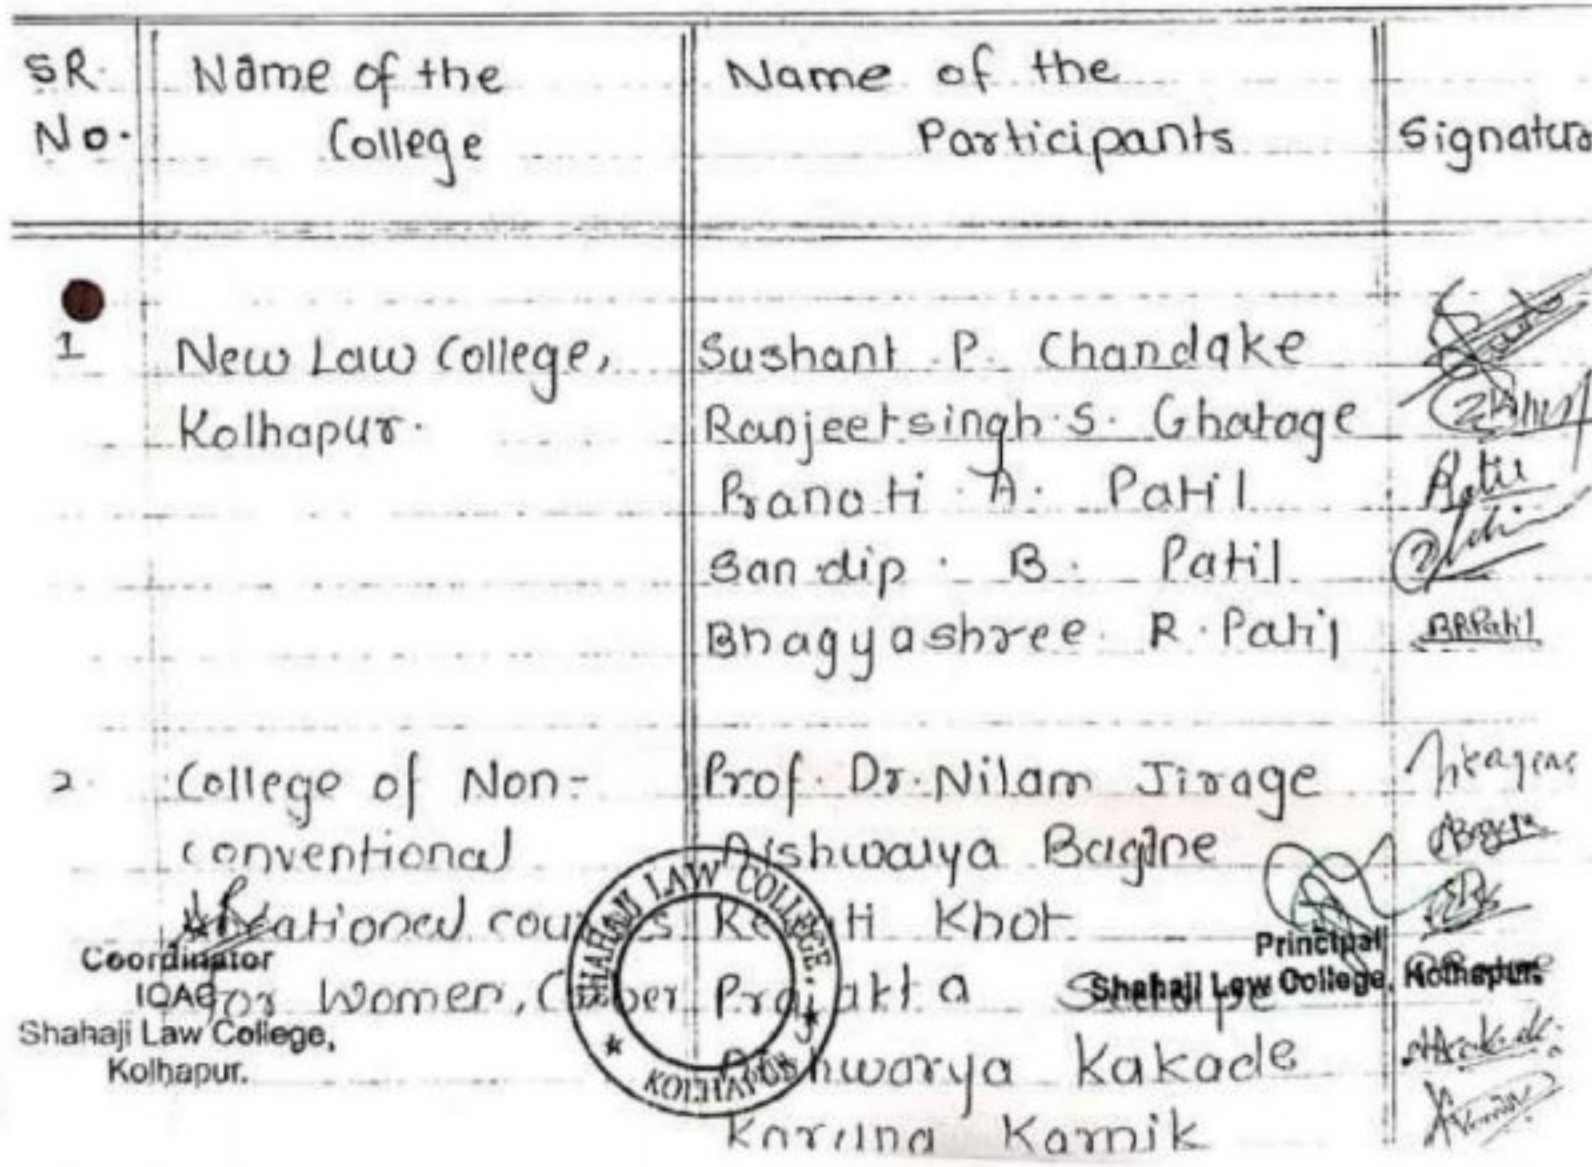 SR. No. Name of the College Name of the Participants Signatur
1 New Law College, Sushant P. Chandake
Kolhapur. Ranjeetsingh.S. Ghatage
Pranati A. Patil
Sandip. B. Patil
Bhagyashree R. Patil BRPatil
2. College of Non- Prof. Dr. Nilam Jirage
conventional Aishwarya Bagane
Khot
for Women, Prajakta
Aishwarya Kakade
Karuna Karnik
Coordinator
IQAC
Shahaji Law College,
Kolhapur.
SHAHAJI LAW COLLEGE.
KOLHAPUR
Principal
Shahaji Law College, Kolhapur.